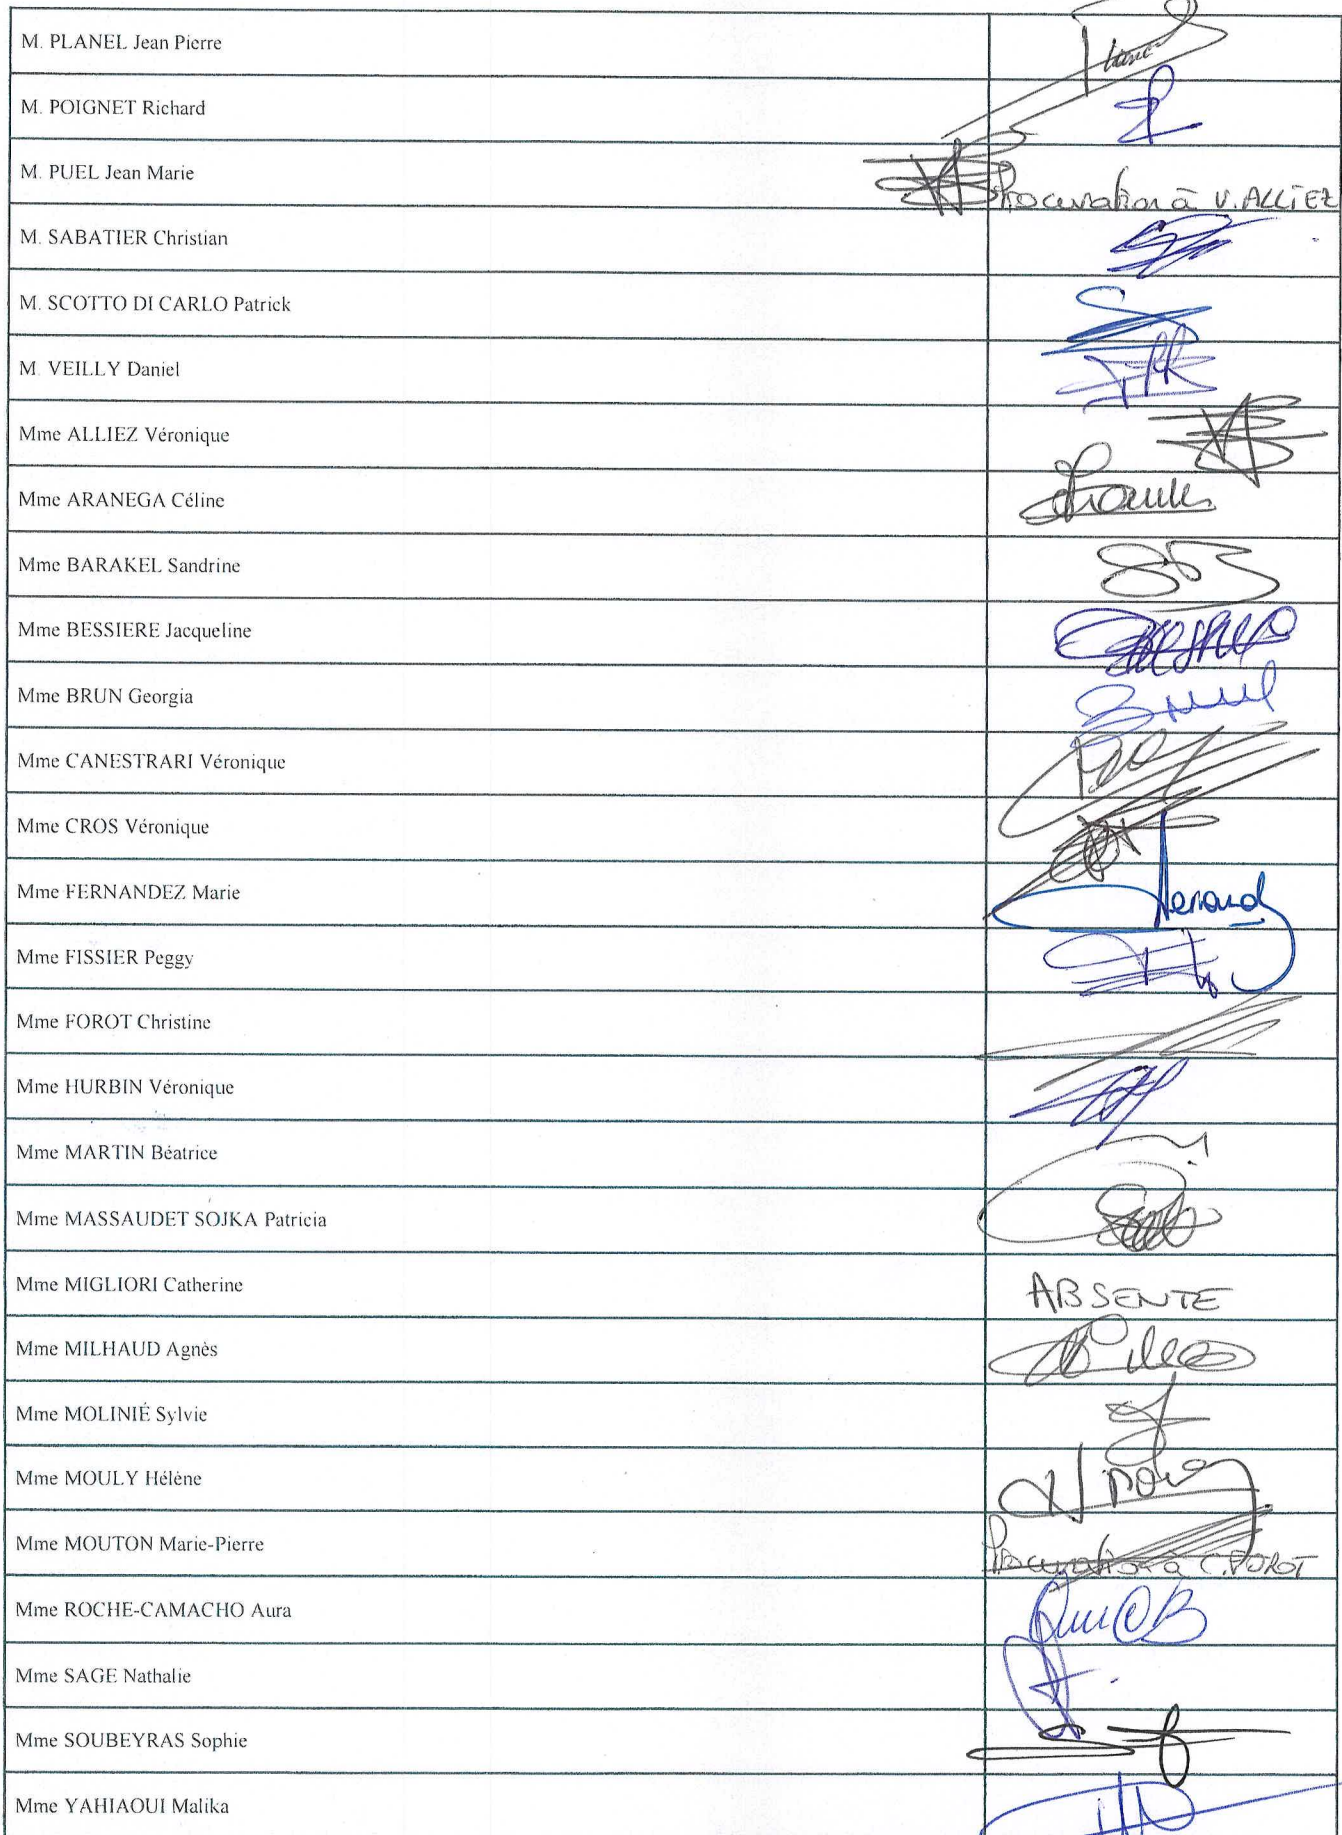 M. PLANEL Jean Pierre
M. POIGNET Richard
M. PUEL Jean Marie
Procuration à V. ALLIEZ
M. SABATIER Christian
M. SCOTTO DI CARLO Patrick
M. VEILLY Daniel
Mme ALLIEZ Véronique
Mme ARANEGA Céline
Mme BARAKEL Sandrine
Mme BESSIERE Jacqueline
Mme BRUN Georgia
Mme CANESTRARI Véronique
Mme CROS Véronique
Mme FERNANDEZ Marie
Mme FISSIER Peggy
Mme FOROT Christine
Mme HURBIN Véronique
Mme MARTIN Béatrice
Mme MASSAUDET SOJKA Patricia
Mme MIGLIORI Catherine
ABSENTE
Mme MILHAUD Agnès
Mme MOLINIÉ Sylvie
Mme MOULY Hélène
Mme MOUTON Marie-Pierre
Procuration à C. FOROT
Mme ROCHE-CAMACHO Aura
Mme SAGE Nathalie
Mme SOUBEYRAS Sophie
Mme YAHIAOUI Malika